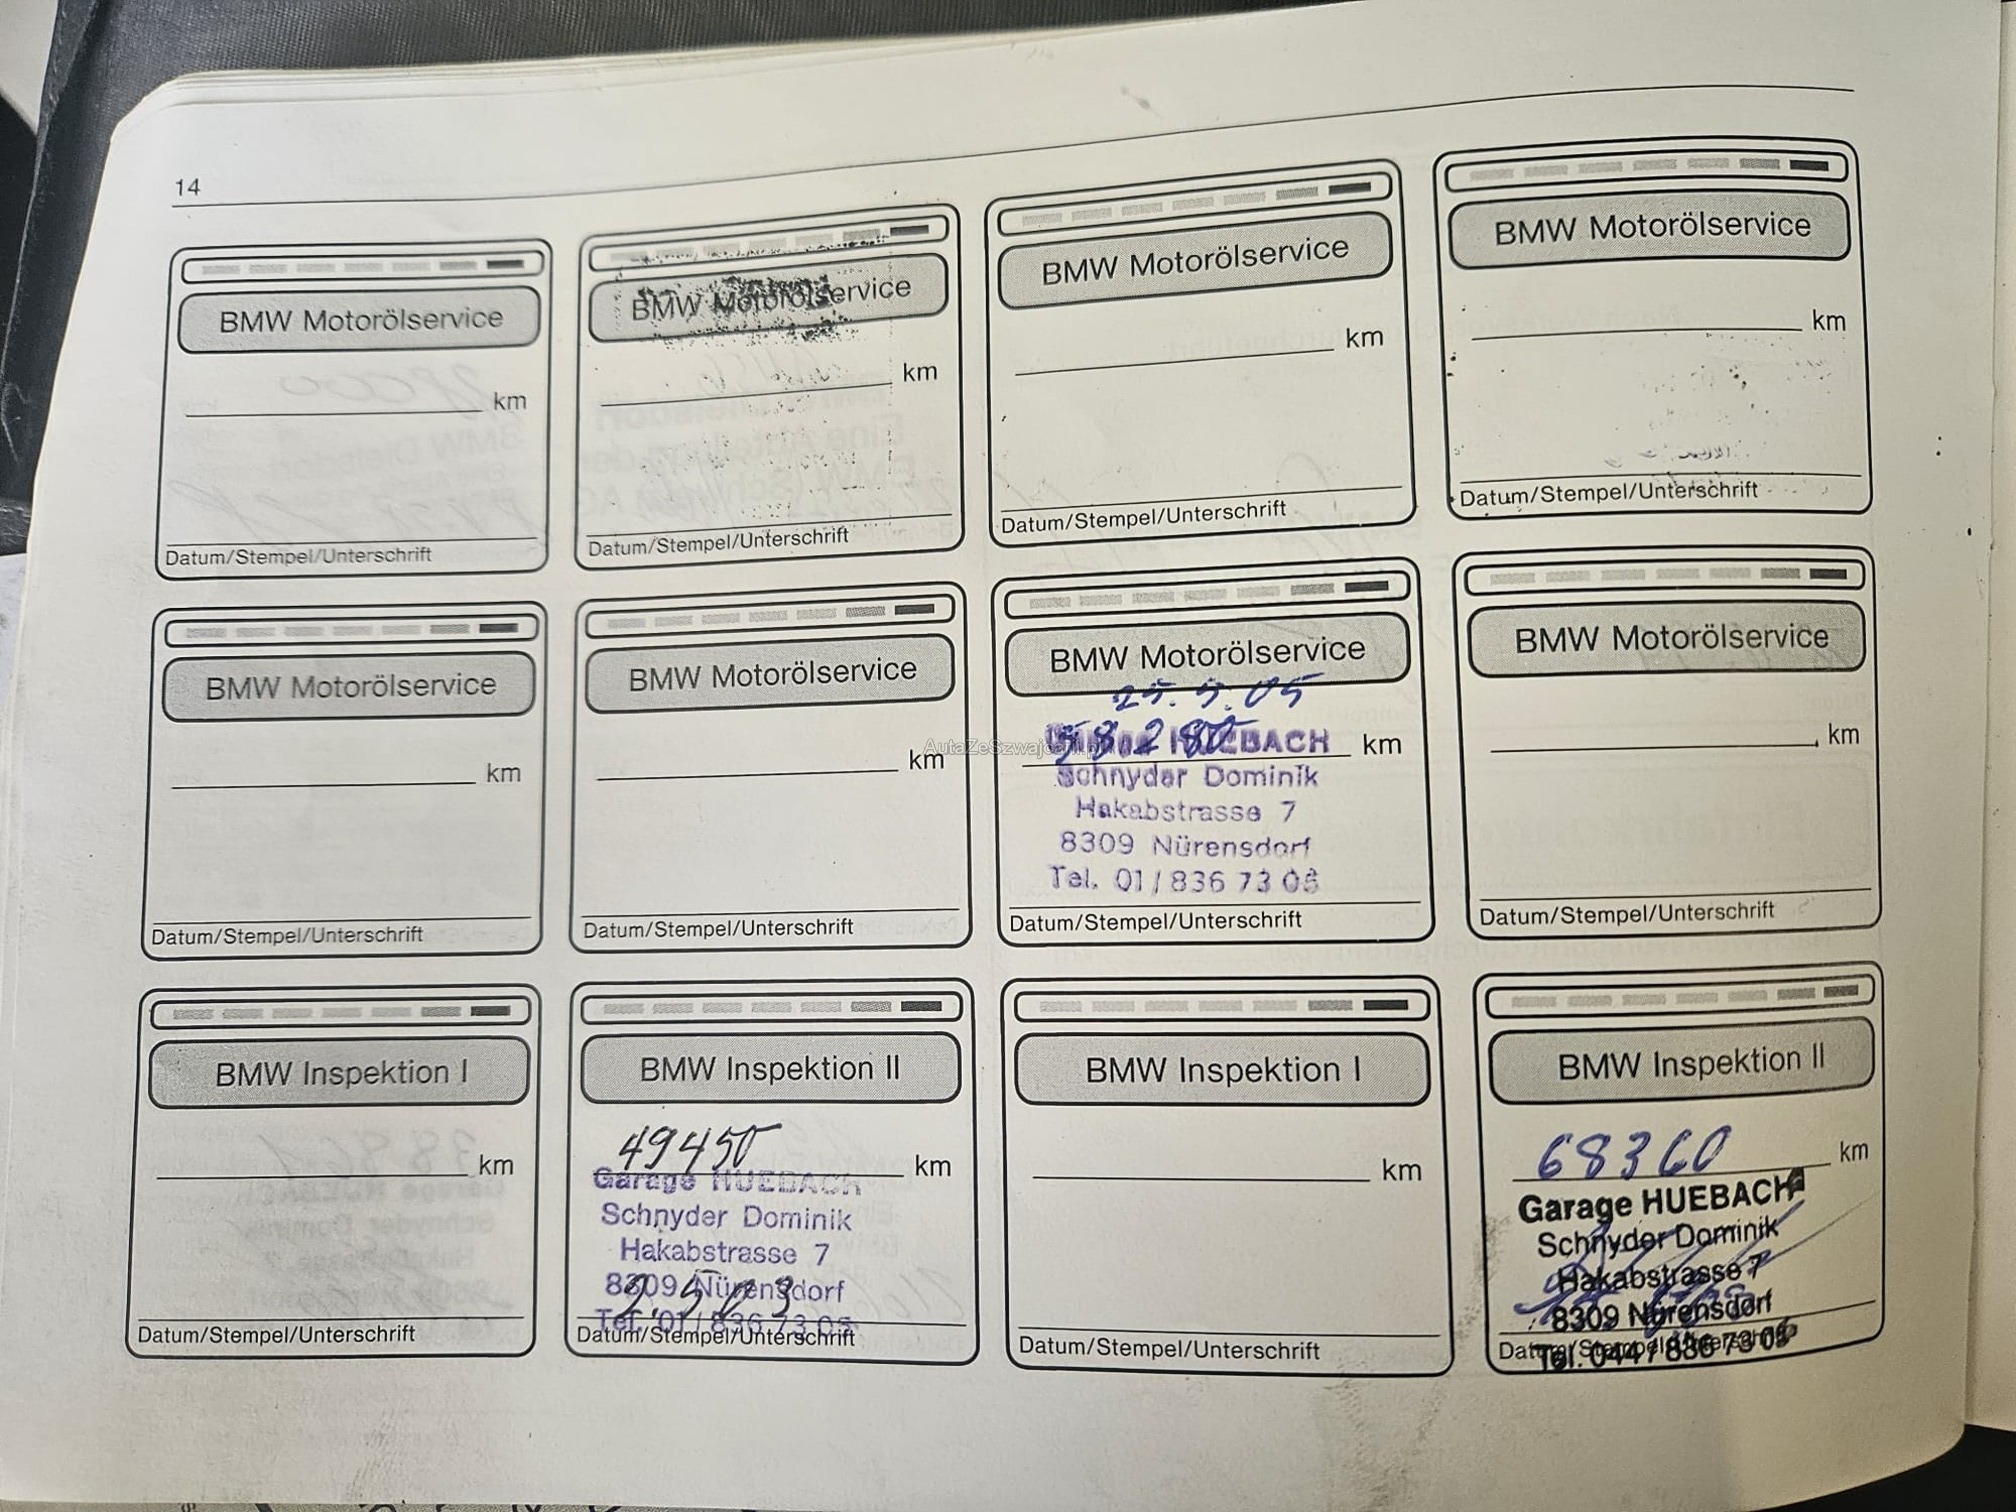 14
BMW Motorölservice
km
Datum/Stempel/Unterschrift
BMW Motorölservice
km
Datum/Stempel/Unterschrift
BMW Motorölservice
km
Datum/Stempel/Unterschrift
BMW Motorölservice
km
Datum/Stempel/Unterschrift
BMW Motorölservice
km
Datum/Stempel/Unterschrift
BMW Motorölservice
km
Datum/Stempel/Unterschrift
BMW Motorölservice
58280 km
HUEBACH
Schnyder Dominik
Hakabstrasse 7
8309 Nürensdorf
Tel. 01/836 73 05
Datum/Stempel/Unterschrift
BMW Motorölservice
km
Datum/Stempel/Unterschrift
BMW Inspektion I
km
Datum/Stempel/Unterschrift
BMW Inspektion II
49450 km
Garage HUEBACH
Schnyder Dominik
Hakabstrasse 7
8309 Nürensdorf
2.5.03
Tel. 01/836 73 05
Datum/Stempel/Unterschrift
BMW Inspektion I
km
Datum/Stempel/Unterschrift
BMW Inspektion II
68360 km
Garage HUEBACH
Schnyder Dominik
Hakabstrasse 7
8309 Nürensdorf
Tel. 044 / 836 73 05
Datum/Stempel/Unterschrift